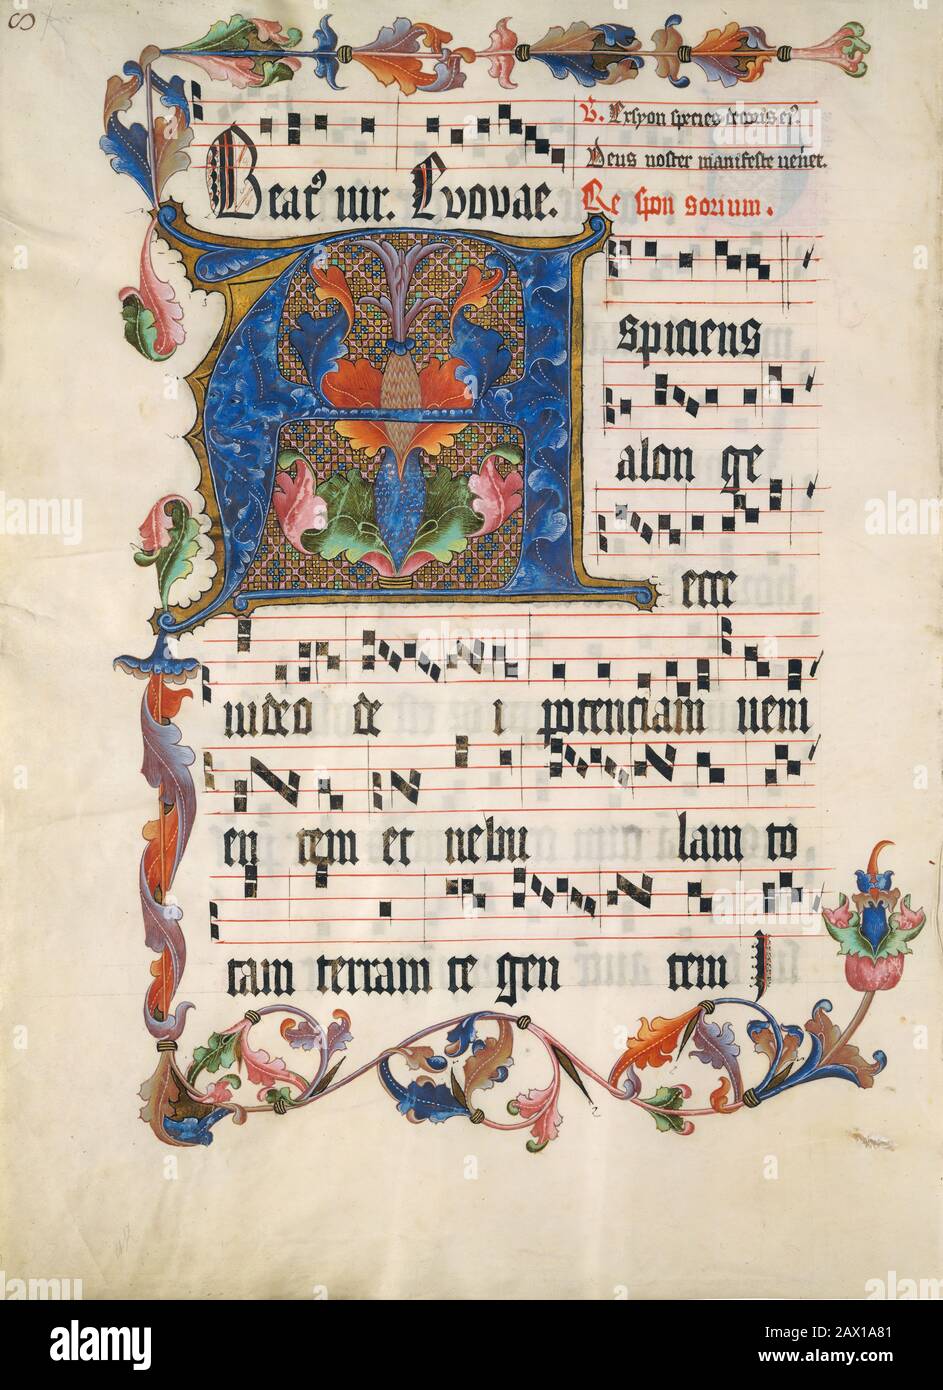 Beatꝰ uir. Evovae.
℣. Ex syon species decoris eiꝰ.
Deus noster manifeste veniet.
Re spon sorium.
A spiciens
alon ge
ecce
uideo de i potenciam ueni
en tem et nebu lam to
tam terram te gen tem I
alamy
alamy
Image ID: 2AX1A81
www.alamy.com